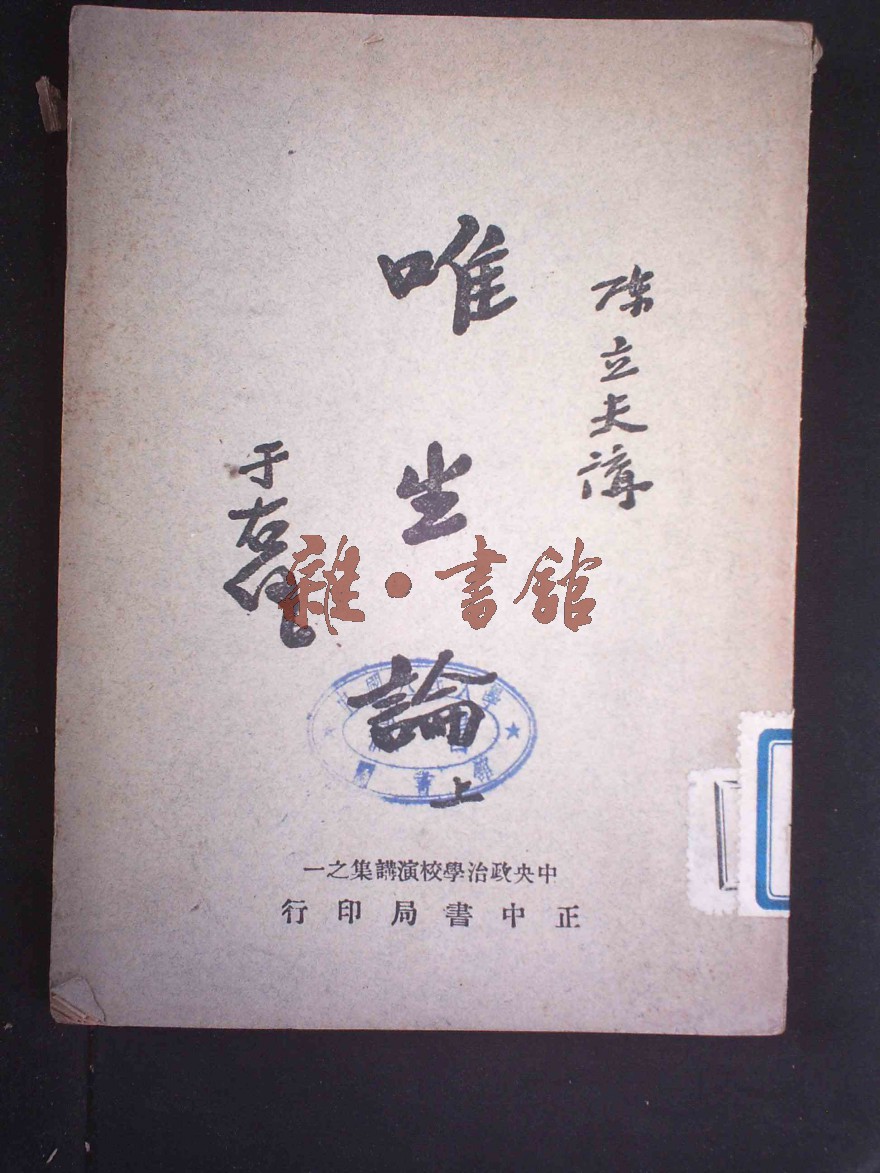 陳立夫講
唯生論
上
于右任
雜·書館
中央政治學校演講集之一
正中書局印行